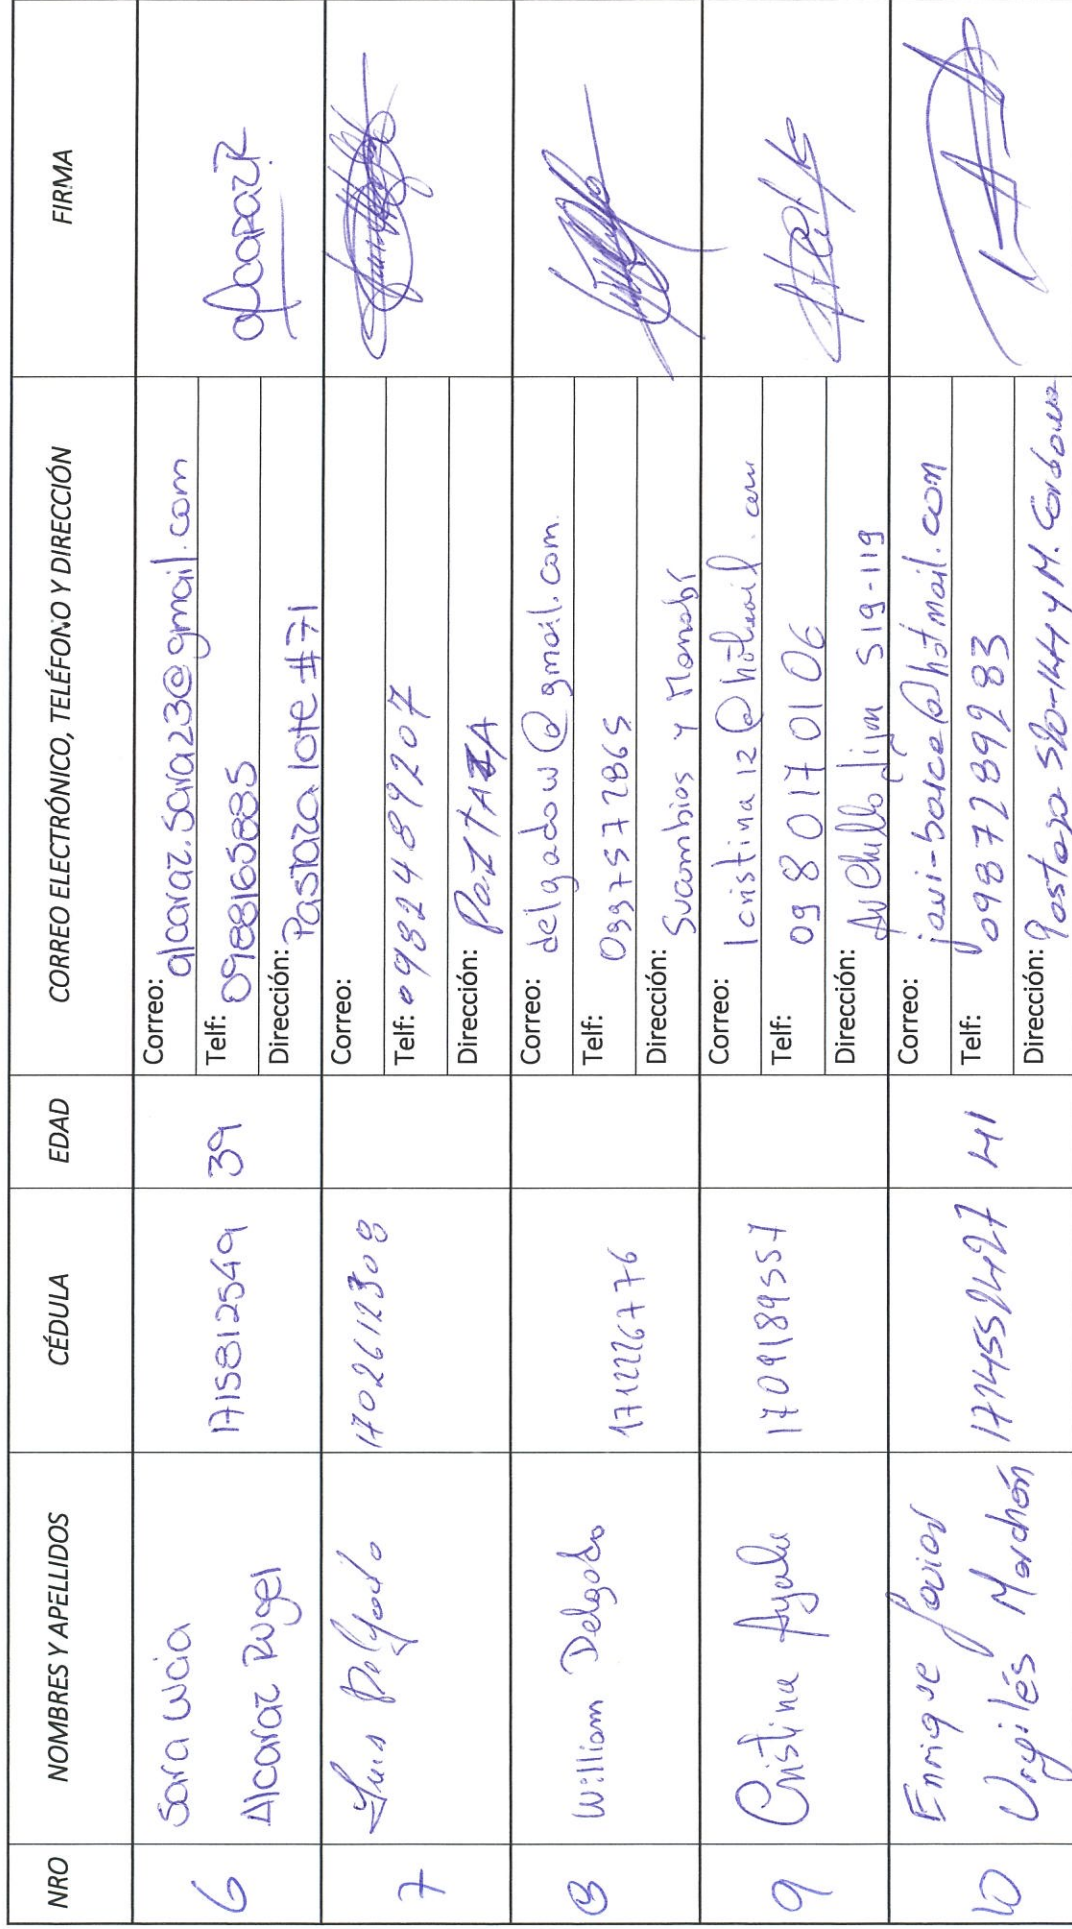 NRO NOMBRES Y APELLIDOS CÉDULA EDAD CORREO ELECTRÓNICO, TELÉFONO Y DIRECCIÓN FIRMA
6
Sara Lucia
Alcaraz Rugel
1715812549
39
Correo: alcaraz.sara23@gmail.com
Telf: 0988165885
Dirección: Pastaza lote #71
alcarazR
7
Luis Delgado
1702612308
Correo:
Telf: 0982489207
Dirección:
8
William Delgado
1712226776
Correo: delgadow@gmail.com.
Telf: 0997572865
Dirección: Sucumbios y Manabí
9
Cristina Ayala
1709189557
Correo: lcristina12@hotmail.com
Telf: 0980170106
Dirección: Av Chillo Jijon S19-119
10
Enrique Javier
Urgilés Marchán
1714552427
41
Correo: javi-barce@hotmail.com
Telf: 0987289283
Dirección: Pastaza S20-144 y M. Cordova